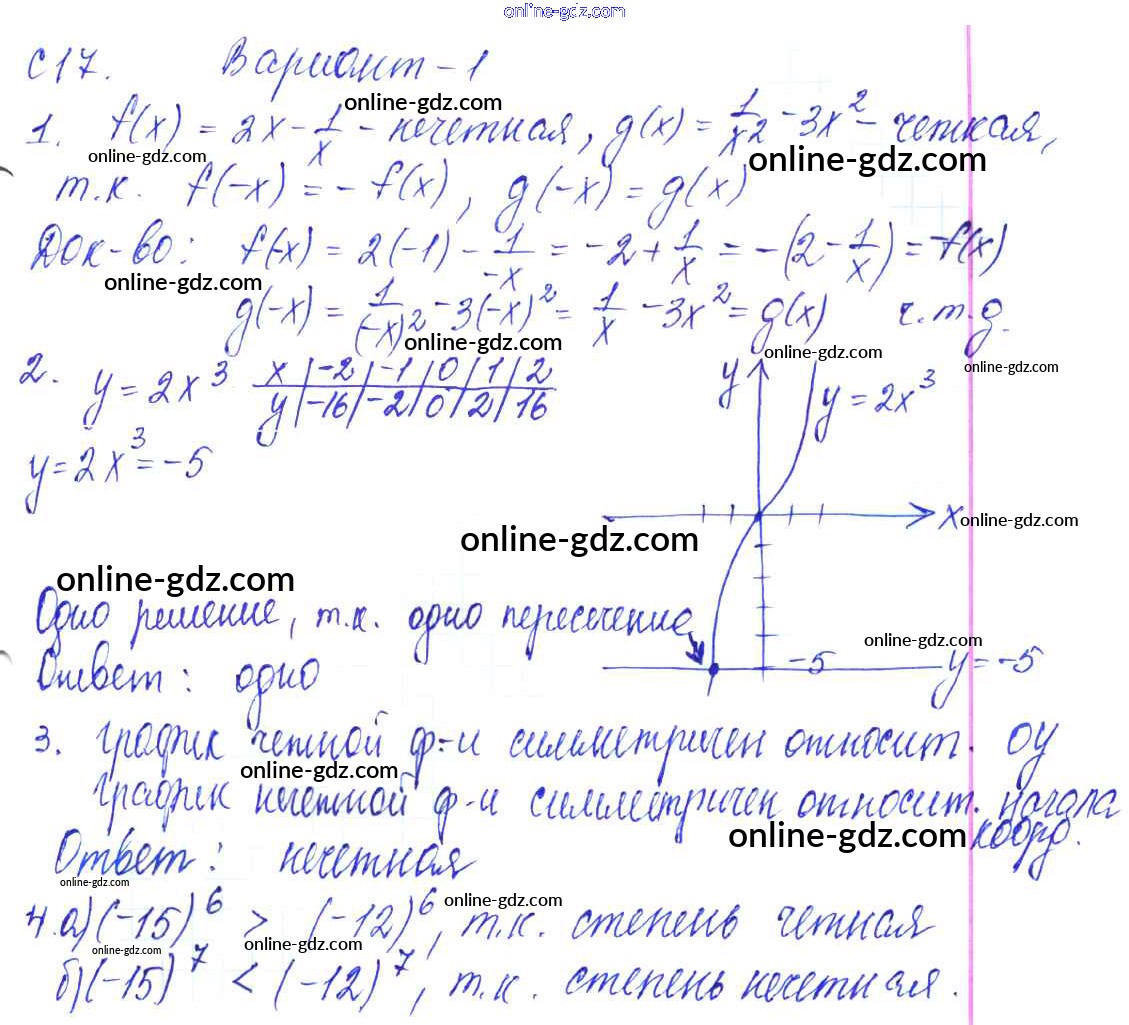 online-gdz.com
С17. Вариант-1
online-gdz.com
1. f(x) = 2x - 1/x - нечетная, g(x) = 1/x2 - 3x² - четкая,
online-gdz.com online-gdz.com
т.к. f(-x) = - f(x), g(-x) = g(x)
Док-во: f(-x) = 2(-1) - 1/-x = -2 + 1/x = -(2 - 1/x) = -f(x)
online-gdz.com
g(-x) = 1/(-x)² - 3(-x)² = 1/x - 3x² = g(x) ч.т.д.
online-gdz.com online-gdz.com online-gdz.com
2. y = 2x³
x | -2 | -1 | 0 | 1 | 2
y | -16 | -2 | 0 | 2 | 16
y
y = 2x³
y = 2x³ = -5
x
online-gdz.com
online-gdz.com
online-gdz.com
Одно решение, т.к. одно пересечение
online-gdz.com
Ответ: одно
-5
y = -5
3. График четной ф-и симметричен относит. OY
online-gdz.com
График нечетной ф-и симметричен относит. начала
online-gdz.com коорд.
Ответ: нечетная
online-gdz.com
4. а) (-15)⁶ > (-12)⁶, т.к. степень четная
online-gdz.com
online-gdz.com online-gdz.com
б) (-15)⁷ < (-12)⁷, т.к. степень нечетная.